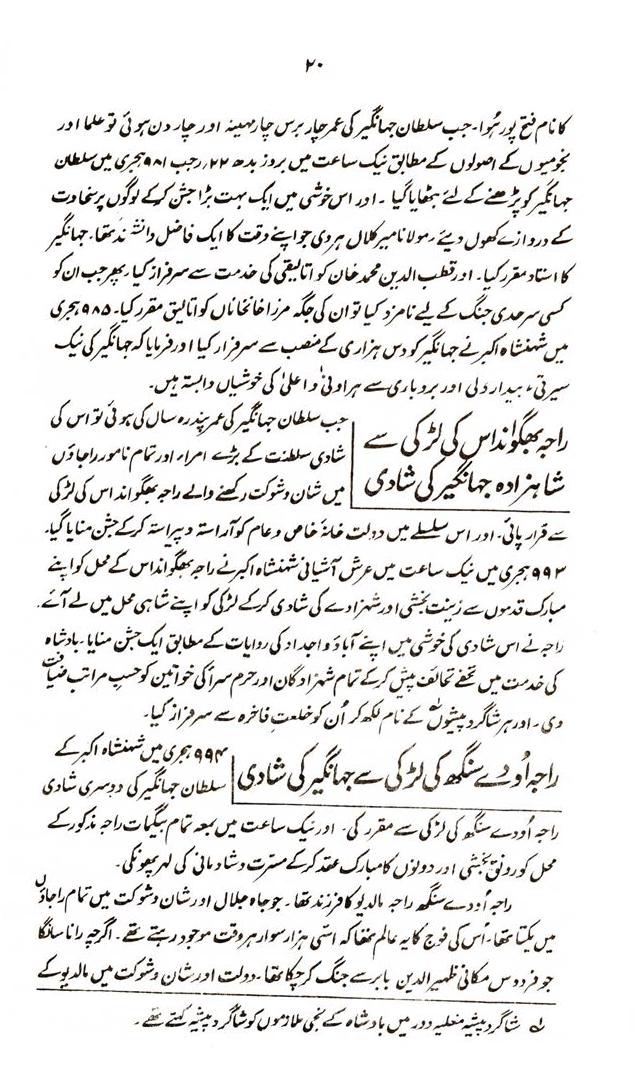 ۲۰
کا نام فتح پور ہُوا۔ جب سلطان جہانگیر کی عمر چار برس چار مہینہ اور چار دن ہوئی تو علما اور
نجومیوں کے اصولوں کے مطابق نیک ساعت میں بروز بدھ ۲۲؍ رجب ۹۸۱ ہجری میں سلطان
جہانگیر کو پڑھنے کے لئے بٹھایا گیا۔ اور اس خوشی میں ایک بہت بڑا جشن کر کے لوگوں پر سخاوت
کے دروازے کھول دیئے۔ مولانا میر کلال ہروی جو اپنے وقت کا ایک فاضل دانشمند تھا۔ جہانگیر
کا استاد مقرر کیا۔ اور قطب الدین محمد خان کو اتالیقی کی خدمت سے سرفراز کیا۔ پھر جب ان کو
کسی سرحدی جنگ کے لیے نامزد کیا تو ان کی جگہ مرزا خانخاناں کو اتالیق مقرر کیا۔ ۹۸۵ ہجری
میں شہنشاہ اکبر نے جہانگیر کو دس ہزاری کے منصب سے سرفراز کیا اور فرمایا کہ جہانگیر کی نیک
سیرتی، بیدار دلی اور بردباری سے ہر ادنیٰ و اعلیٰ کی خوشیاں وابستہ ہیں۔
راجہ بھگوانداس کی لڑکی سے
شاہزادہ جہانگیر کی شادی
جب سلطان جہانگیر کی عمر پندرہ سال کی ہوئی تو اس کی
شادی سلطنت کے بڑے امراء اور تمام نامور راجاؤں
میں شان و شوکت رکھنے والے راجہ بھگوانداس کی لڑکی
سے قرار پائی۔ اور اس سلسلے میں دولت خانۂ خاص و عام کو آراستہ و پیراستہ کر کے جشن منایا گیا۔
۹۹۳ ہجری میں نیک ساعت میں عرش آشیانی شہنشاہ اکبر نے راجہ بھگوانداس کے محل کو اپنے
مبارک قدموں سے زینت بخشی اور شہزادے کی شادی کر کے لڑکی کو اپنے شاہی محل میں لے آئے۔
راجہ نے اس شادی کی خوشی میں اپنے آباؤ و اجداد کی روایات کے مطابق ایک جشن منایا۔ بادشاہ
کی خدمت میں تحفے تحائف پیش کر کے تمام شہزادگان اور حرم سرا کی خواتین کو حسبِ مراتب ضیافت
دی۔ اور ہر شاگرد پیشوں؂ کے نام لکھ کر اُن کو خلعتِ فاخرہ سے سرفراز کیا۔
راجہ اُودے سنگھ کی لڑکی سے جہانگیر کی شادی
۹۹۴ ہجری میں شہنشاہ اکبر کے
سلطان جہانگیر کی دوسری شادی
راجہ اودے سنگھ کی لڑکی سے مقرر کی۔ اور نیک ساعت میں بمعہ تمام بیگمات راجہ مذکور کے
محل کو رونق بخشی اور دونوں کا مبارک عقد کر کے مسرت و شادمانی کی لہر پھونکی۔
راجہ اُودے سنگھ راجہ مالدیو کا فرزند تھا۔ جو جاہ جلال اور شان و شوکت میں تمام راجاؤں
میں یکتا تھا۔ اُس کی فوج کا یہ عالم تھا کہ اسّی ہزار سوار ہر وقت موجود رہتے تھے۔ اگرچہ رانا سانگا
جو فردوس مکانی ظہیر الدین بابر سے جنگ کر چکا تھا۔ دولت اور شان و شوکت میں مالدیو کے
؂ شاگرد پیشہ مغلیہ دور میں بادشاہ کے نجی ملازموں کو شاگرد پیشہ کہتے تھے۔